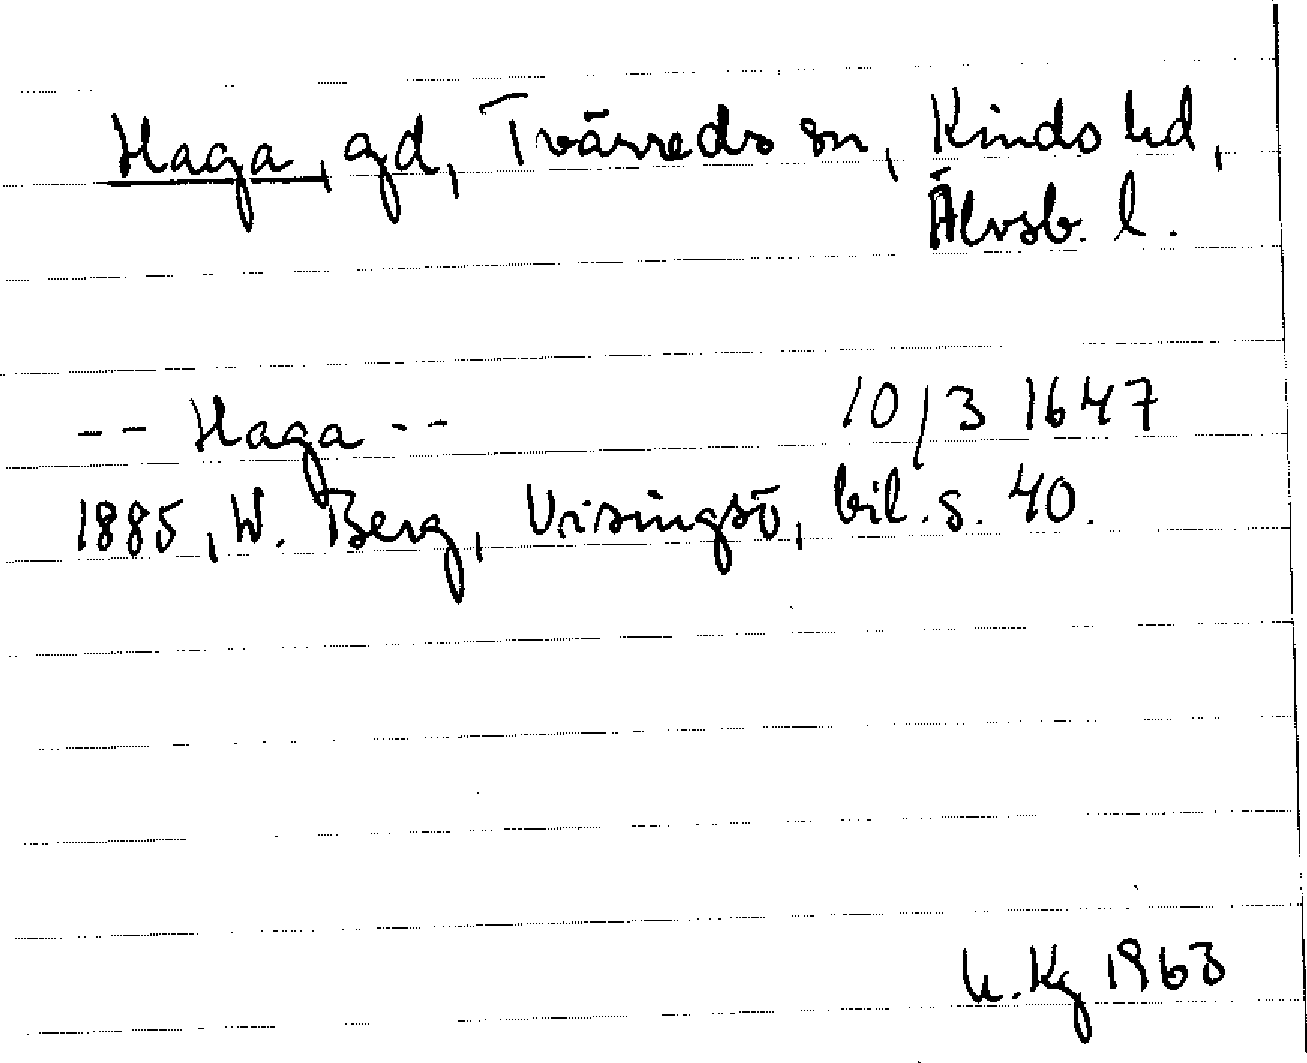 Haga, gd, Tvärreds sn, Kinds hd,
Älvsb. l.
-- Haga -- 10/3 1647
1885, W. Berg, Visingsö, bil. s. 40.
K. Kg 1963